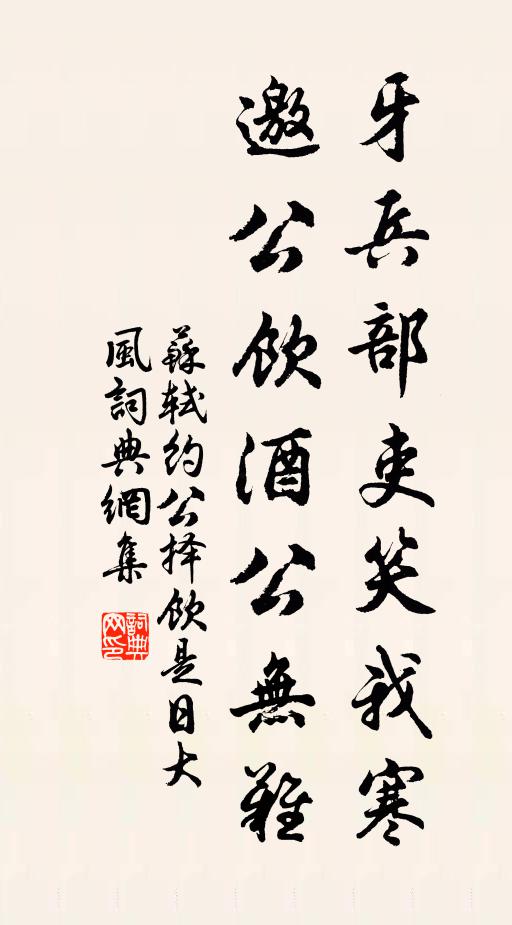 牙兵部吏笑我寒
邀公飲酒公無難
蘇軾約公择飲是日大
風詞典網集
詞典
网印